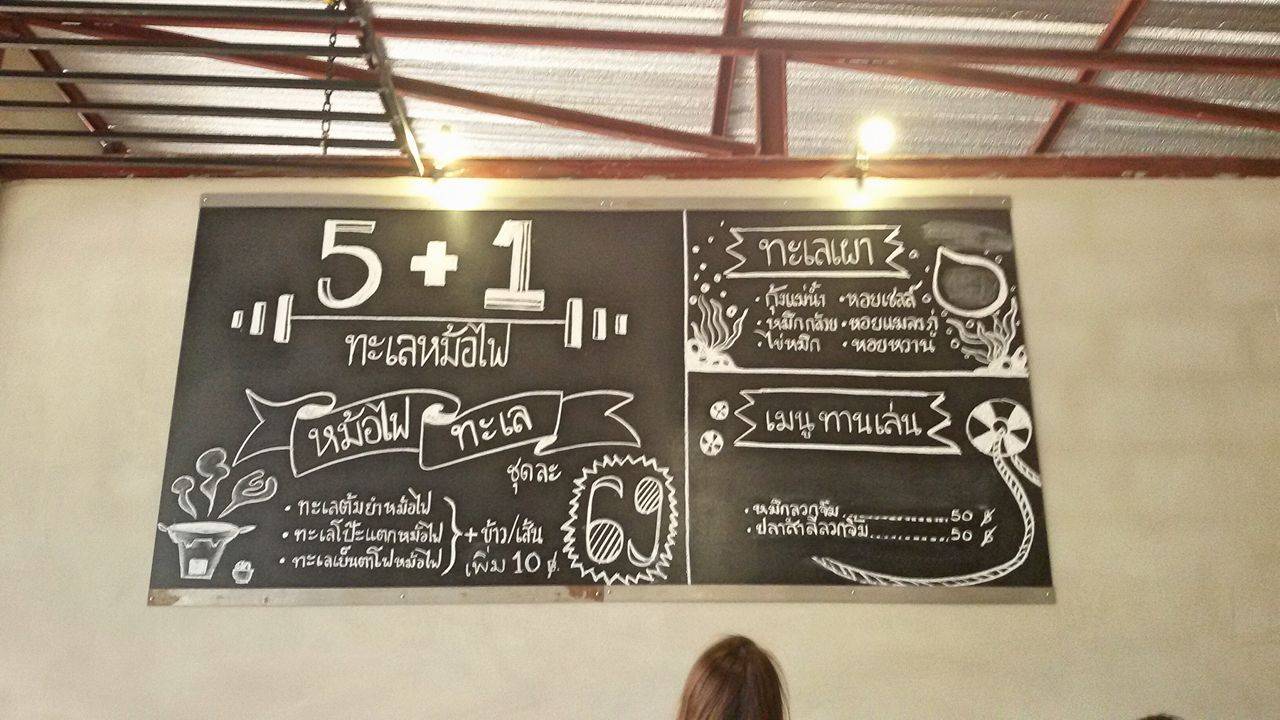 5+1
ทะเลหม้อไฟ
หม้อไฟ ทะเล
ชุดละ 69
• ทะเลต้มยำหม้อไฟ
• ทะเลโป๊ะแตกหม้อไฟ
• ทะเลเย็นตาโฟหม้อไฟ
+ ข้าว/เส้น
เพิ่ม 10 ฿.
ทะเลเผา
• กุ้งแม่น้ำ • หอยเชลล์
• หมึกกล้วย • หอยแมลงภู่
• ไข่หมึก • หอยหวาน
เมนู ทานเล่น
• หมึกลวกจิ้ม ............... 50 ฿
• ปลาสำลีลวกจิ้ม ............... 50 ฿